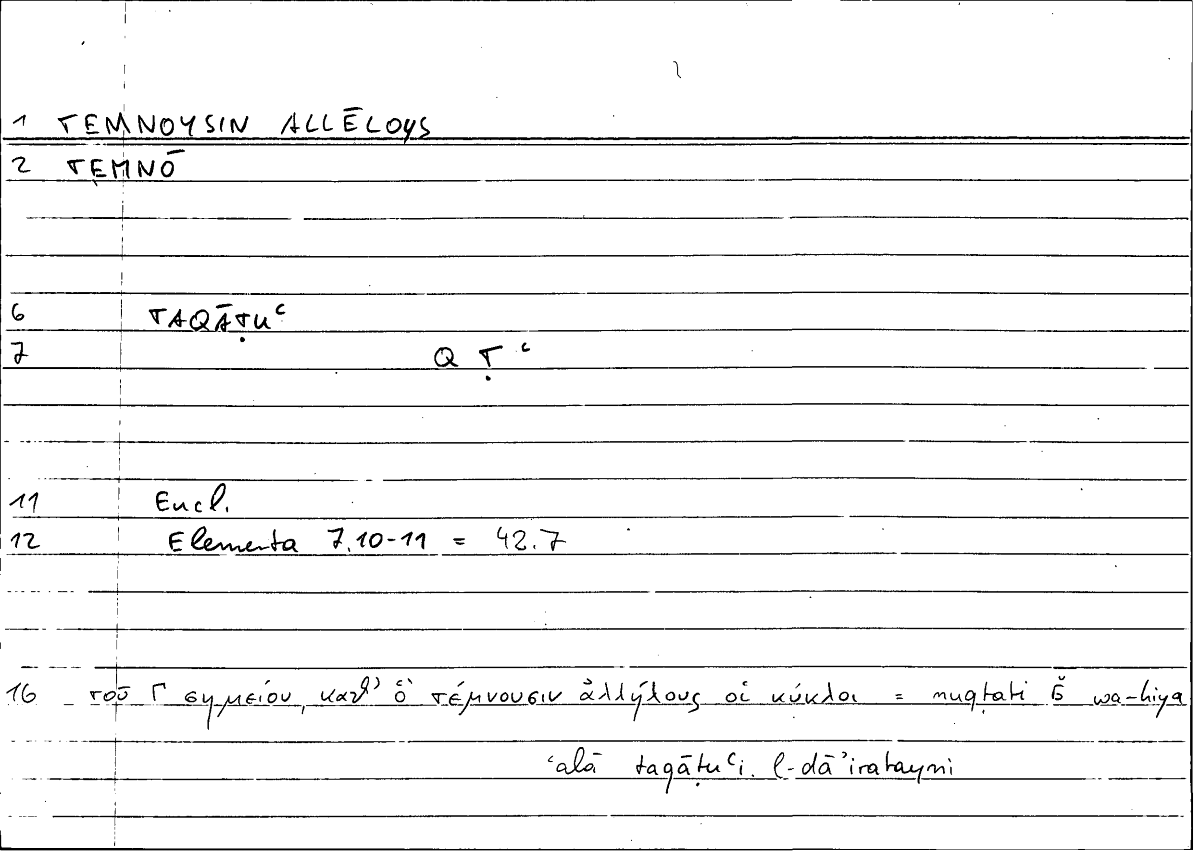 1 TEMNOYSIN ALLĒLOYS
2 TEMNŌ
6 TAQĀṬUʿ
7 Q Ṭ ʿ
11 Eucl.
12 Elementa 7.10-11 = 42.7
16 τοῦ Γ σημείου, καθ' ὃ τέμνουσιν ἀλλήλους οἱ κύκλοι = nuqṭati wa-hiya
ʿalā taqāṭuʿi l-dāʾiratayni